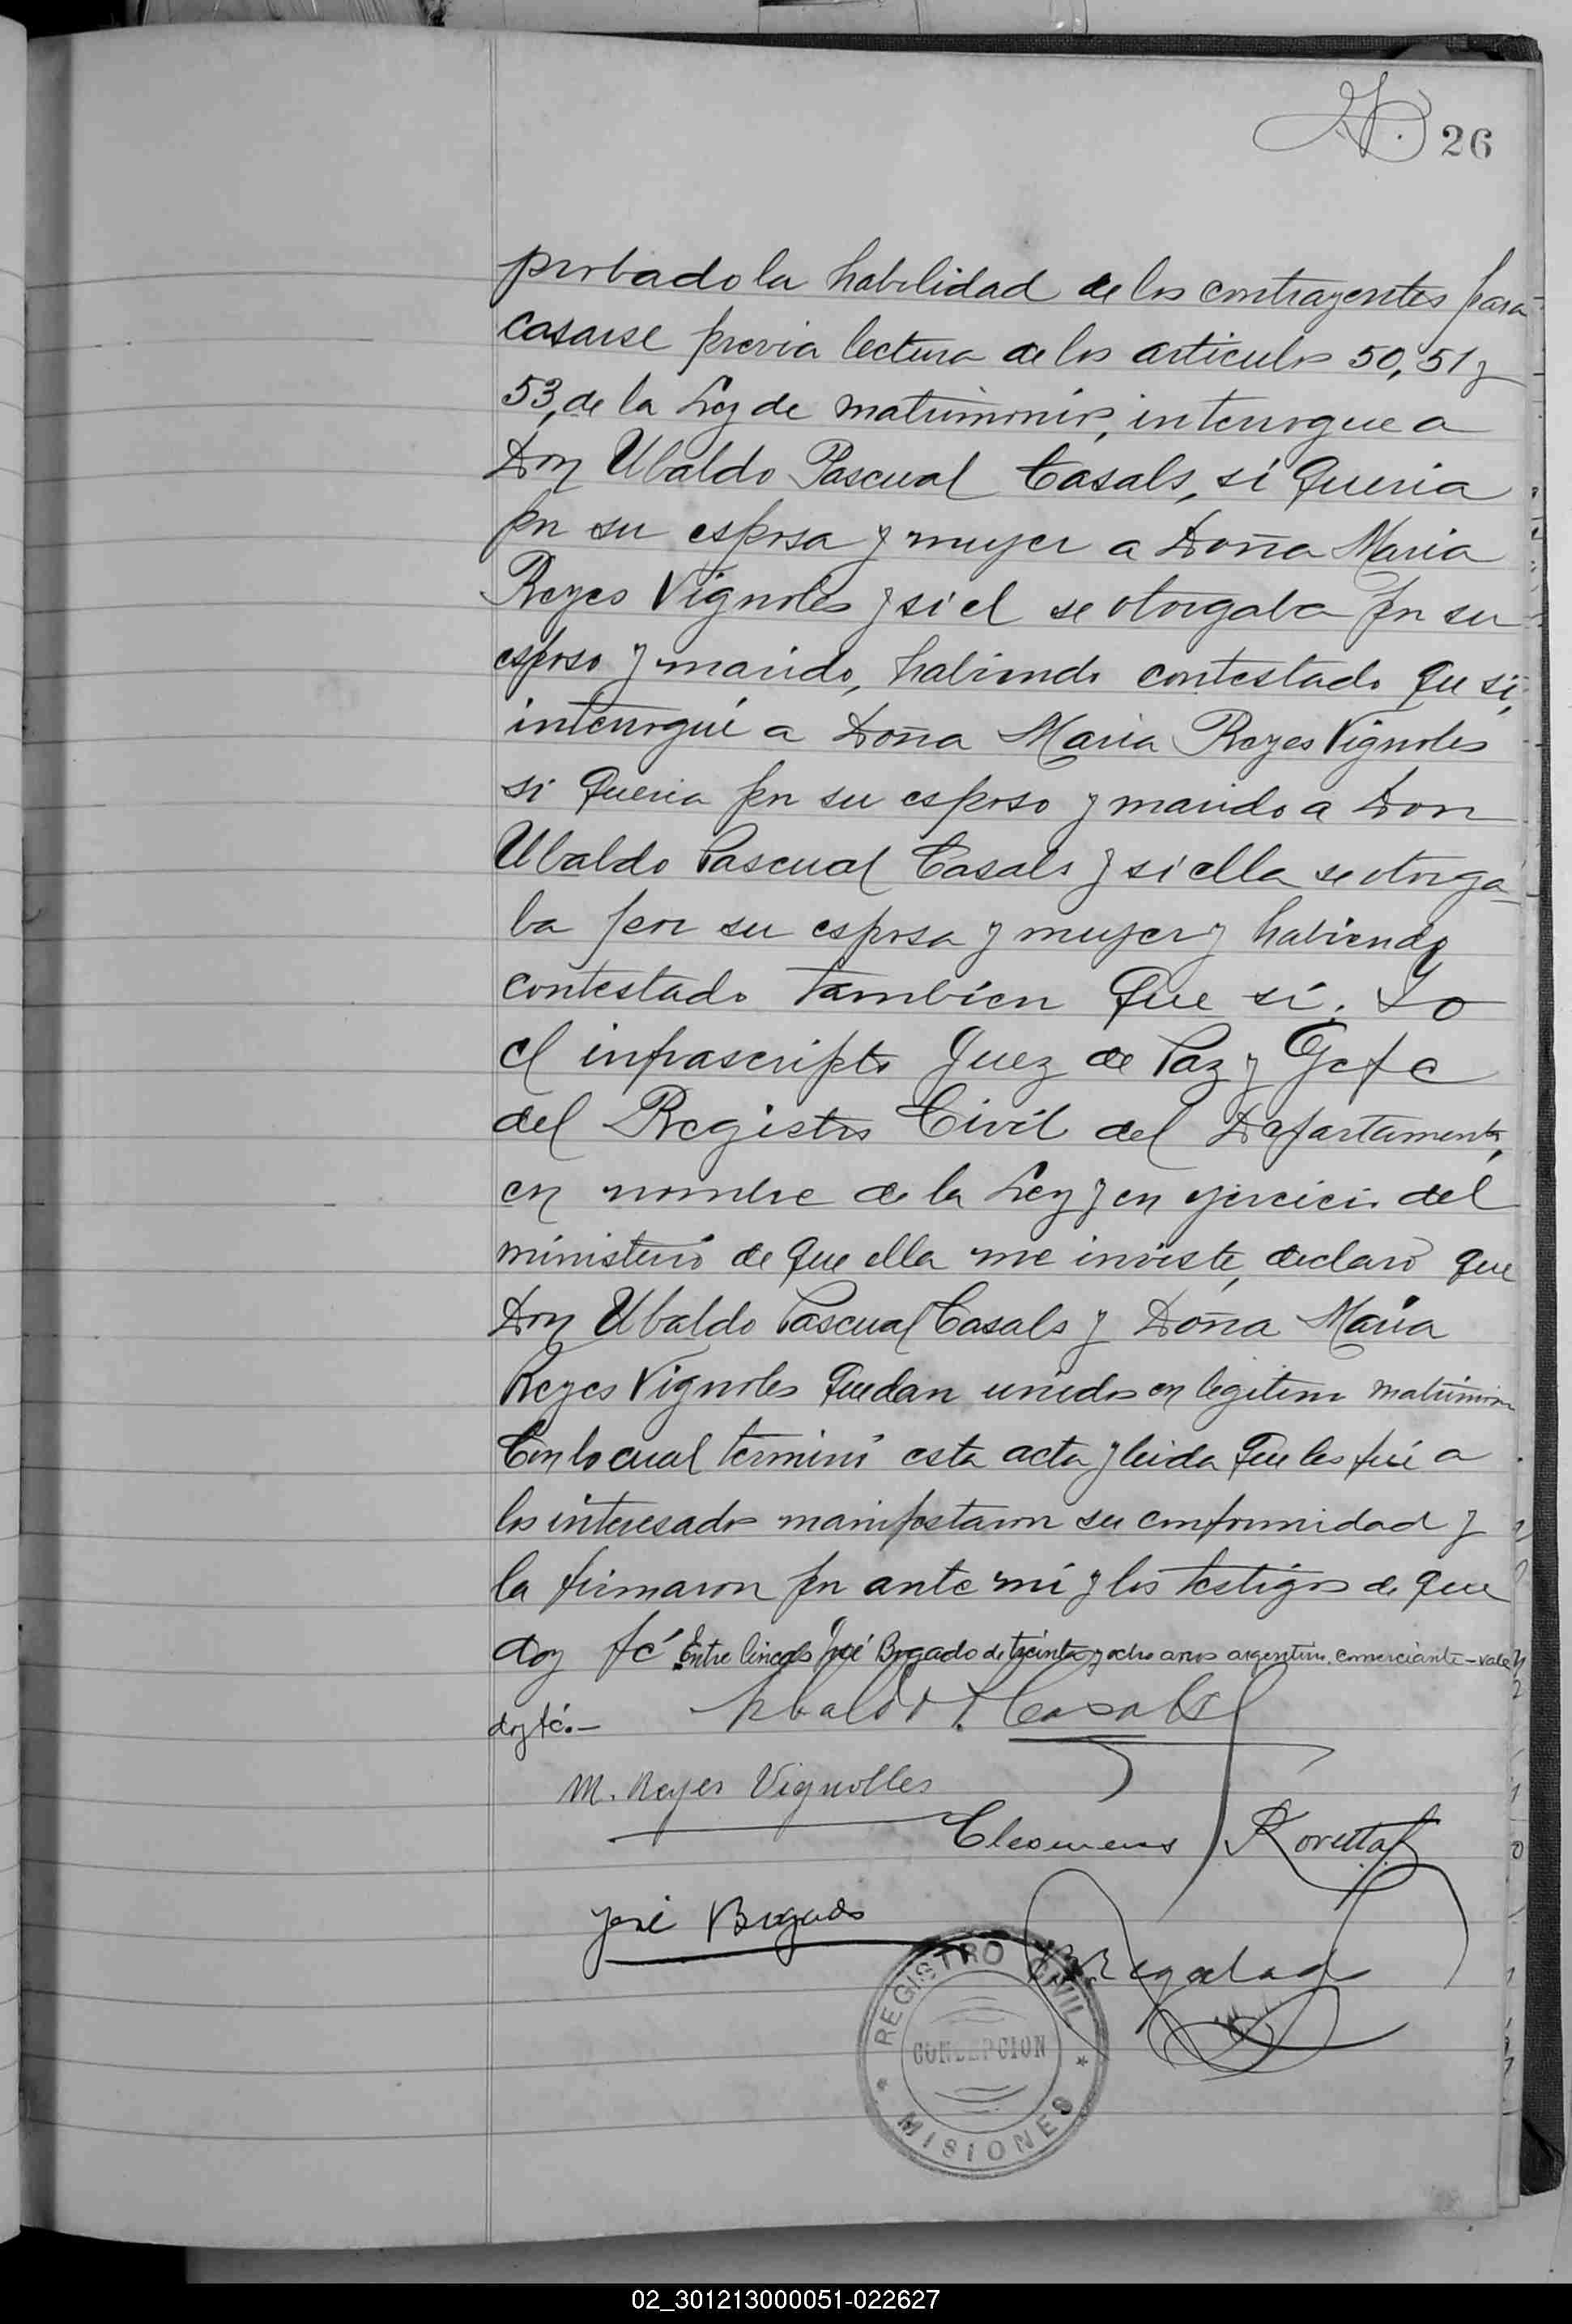 26
probado la habilidad de los contrayentes para
casarse previa lectura de los articulos 50, 51 y
53, de la Ley de matrimonio, interrogue a
Don Ubaldo Pascual Casals, si queria
por su esposa y mujer a Doña Maria
Reyes Vignoles y si el se otorgaba por su
esposo y marido, habiendo contestado que si,
interrogué a Doña Maria Reyes Vignoles
si queria por su esposo y marido a Don
Ubaldo Pascual Casals y si ella se otorga-
ba por su esposa y mujer y habiendo
contestado tambien que sí. Yo
el infrascripto Juez de Paz y Gefe
del Registro Civil del Departamento,
en nombre de la Ley y en ejercicio del
ministerio de que ella me inviste, declaro que
Don Ubaldo Pascual Casals y Doña Maria
Reyes Vignoles quedan unidos en legitimo matrimonio
Con lo cual terminó esta acta y leida que les fué a
los interesados manifestaron su conformidad y
la firmaron por ante mi y los testigos de que
doy fé Entre lineas José Bogado de treinta y ocho anos argentino, comerciante – vale
doy fé.–
Ubaldo P. Casals
M. Reyes Vignolles
José Bogado
REGISTRO CIVIL
CONCEPCION
* MISIONES *
02_301213000051-022627